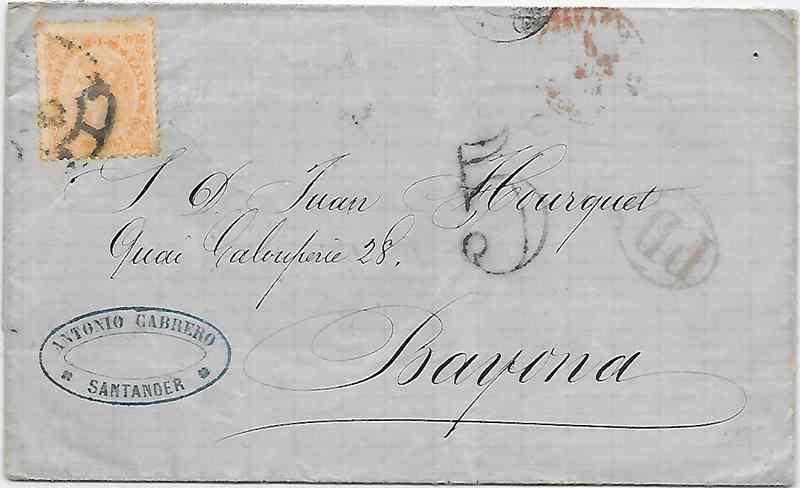 S D. Juan Hourquet
Quai Galouperie 28.
Bayona
5
PD
ANTONIO CABRERO
SANTANDER